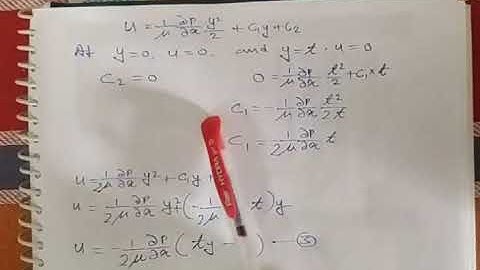 u = 1/μ ∂P/∂x y²/2 + C₁y + C₂
At y=0, u=0. and y=t . u=0
C₂ = 0 0 = 1/μ ∂P/∂x t²/2 + C₁×t
C₁ = -1/μ ∂P/∂x t²/2t
C₁ = -1/2μ ∂P/∂x t
u = 1/2μ ∂P/∂x y² + C₁y +
u = 1/2μ ∂P/∂x y² + (-1/2μ t) y
u = -1/2μ ∂P/∂x ( ty - ) — ③